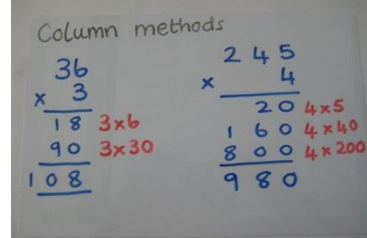 Column methods
36
x 3
18 3x6
90 3x30
108
245
x 4
20 4x5
160 4x40
800 4x200
980